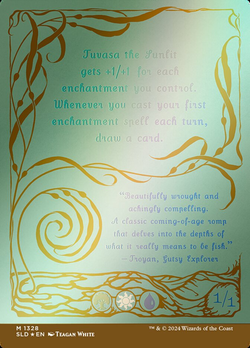 Tuvasa the Sunlit
gets +1/+1 for each
enchantment you control.
Whenever you cast your first
enchantment spell each turn,
draw a card.
"Beautifully wrought and
achingly compelling.
A classic coming-of-age romp
that delves into the depths of
what it really means to be fish."
– Troyan, Gutsy Explorer
1/1
M 1328
SLD ★ EN Teagan White
™ & © 2024 Wizards of the Coast